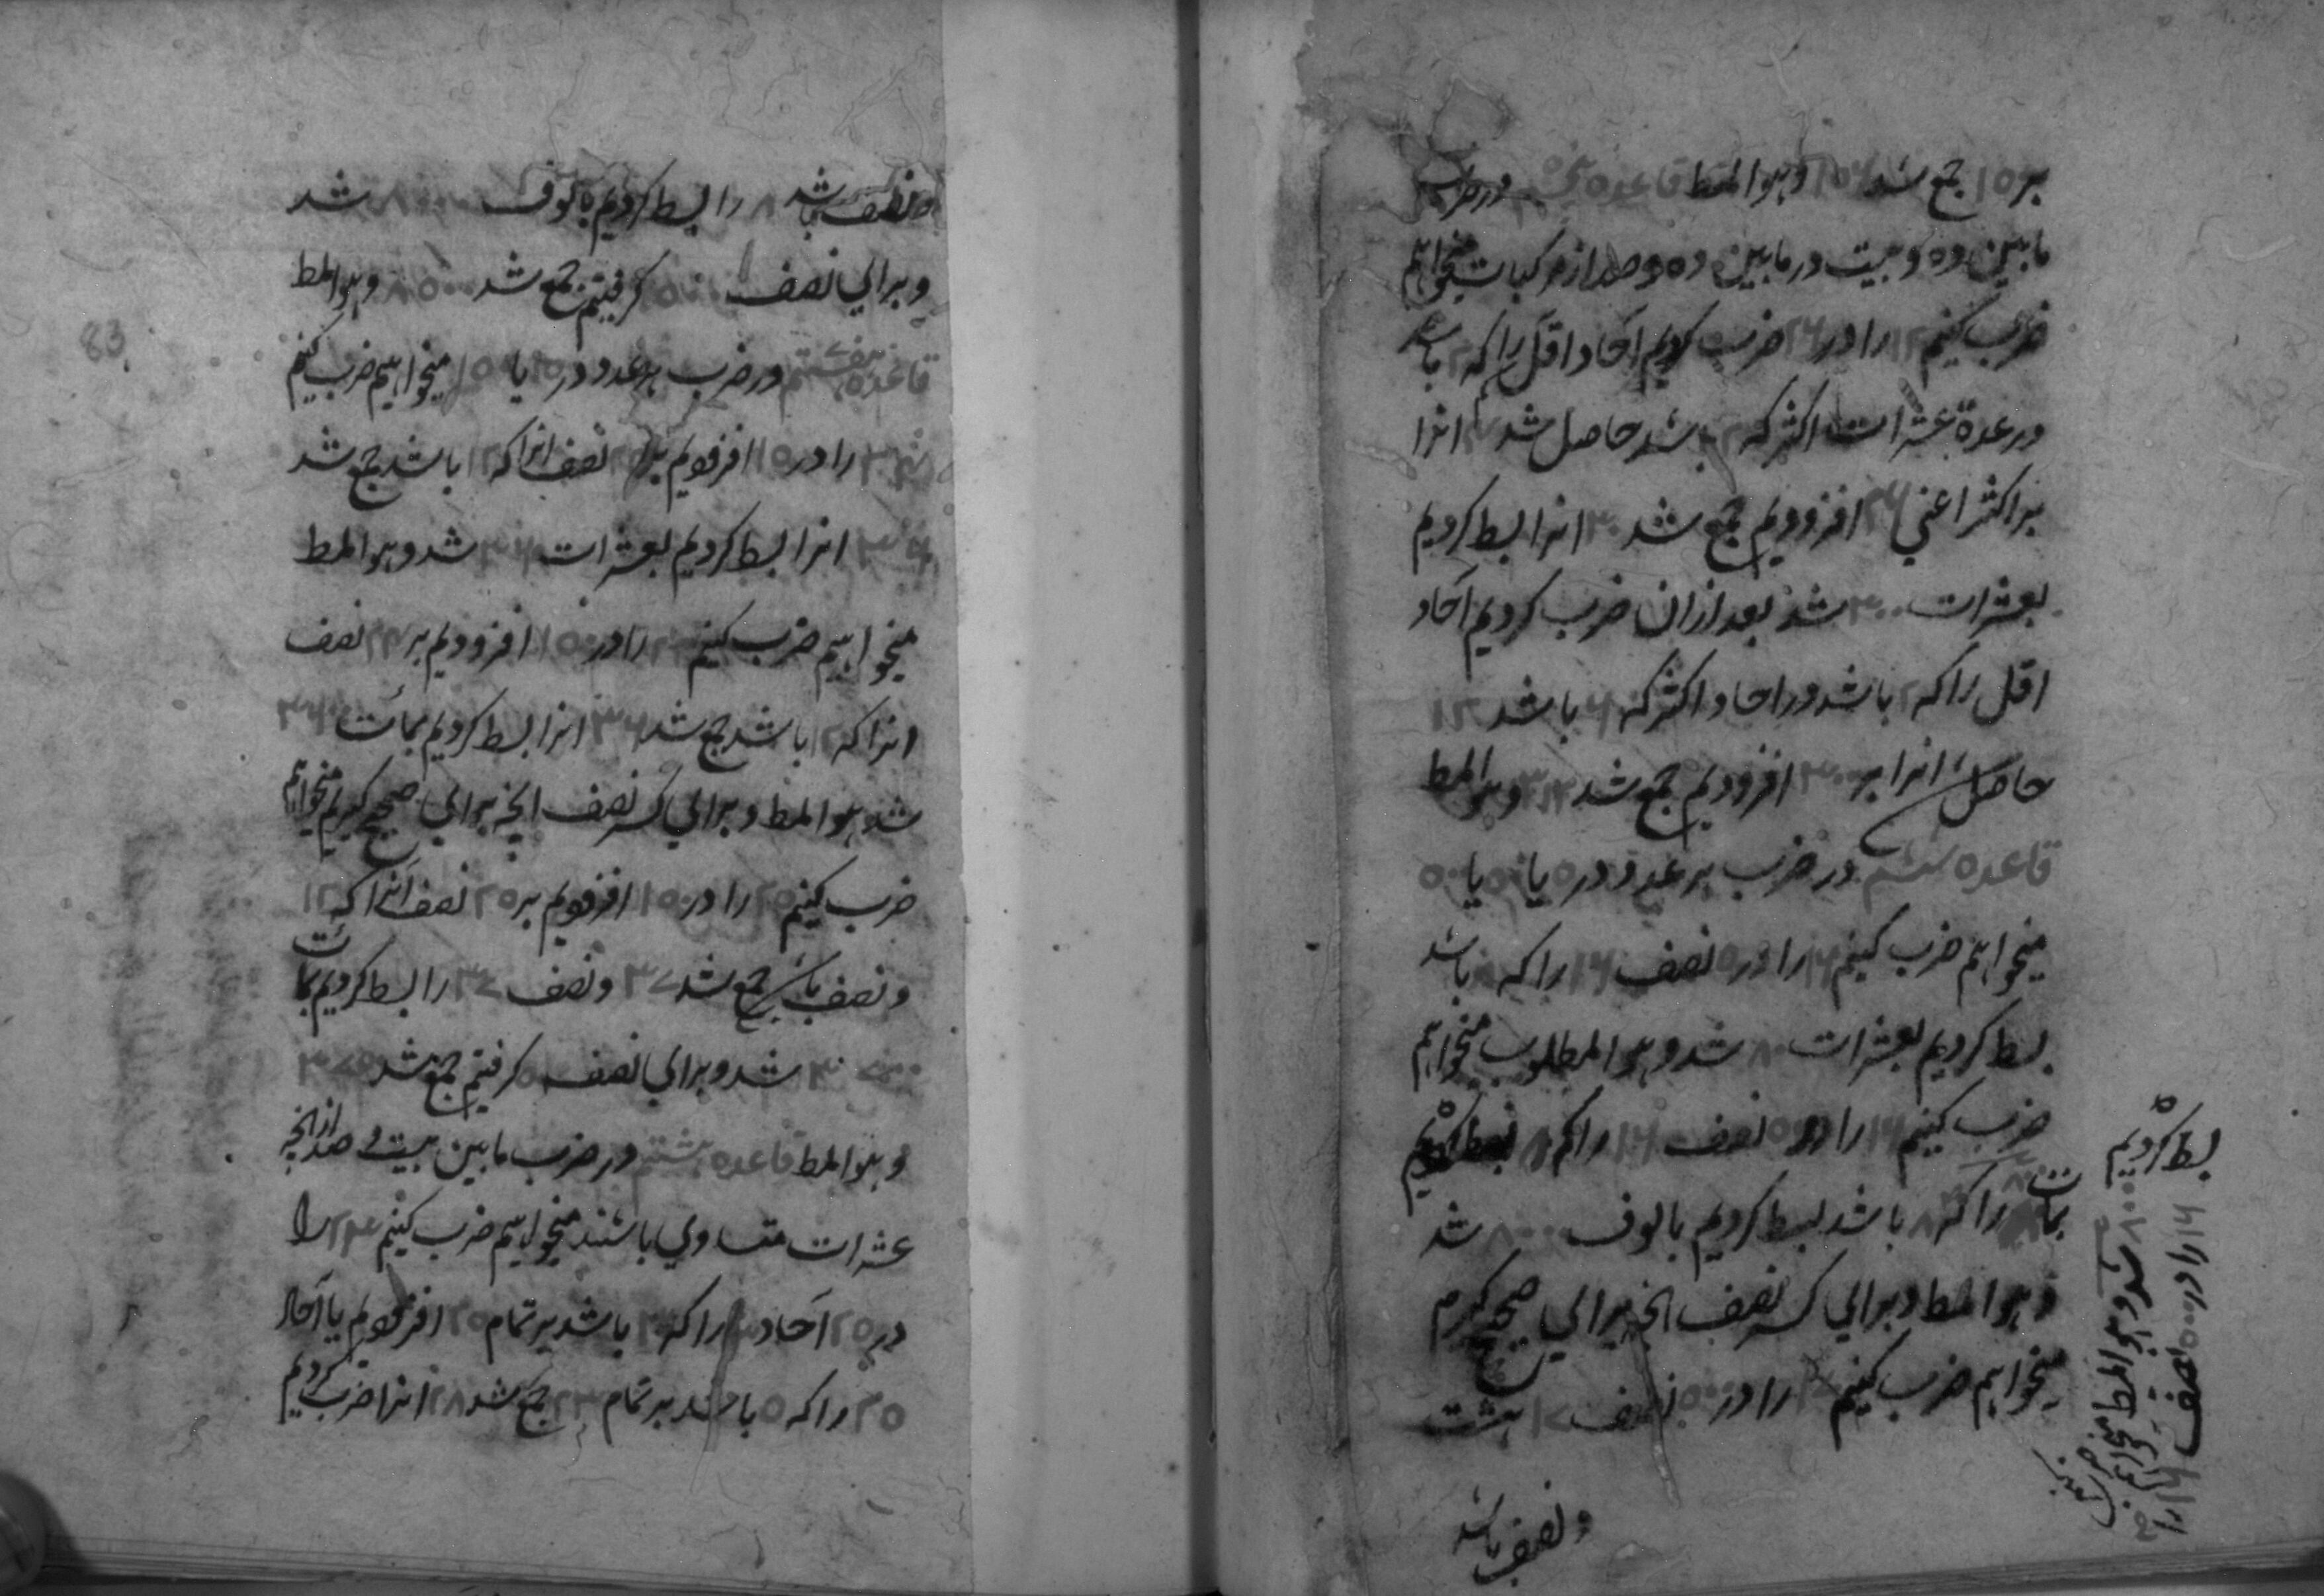 بر ۱۵ جمع شد ۱۵۶ وهو المط قاعده پنجم در ضرب
مابین ده و بیست در مابین ده و صد از مرکبات میخواهیم
ضرب کنیم ۱۲ را در ۲۶ ضرب کردیم آحاد اقل را که ۲ باشد
در عدة عشرات اکثر که ۲ باشد حاصل شد ۴ انرا
بر اکثر اعنی ۲۶ افزودیم جمع شد ۳۰ انرا بسط کردیم
بعشرات ۳۰۰ شد بعد ازان ضرب کردیم آحاد
اقل را که ۲ باشد در احاد اکثر که ۶ باشد ۱۲
حاصل انرا بر ۳۰۰ افزودیم جمع شد ۳۱۲ وهو المط
قاعده ششم در ضرب هر عدد در ۵ یا ۵۰ یا ۵۰۰
میخواهم ضرب کنیم ۱۶ را در ۵ نصف ۱۶ را که ۸ باشد
بسط کردیم بعشرات ۸۰ شد وهو المطلوب میخواهم
ضرب کنیم ۱۶ را در ۵۰ نصف ۱۶ را که ۸ بسط کردیم
بمات را که ۸ باشد بسط کردیم بالوف ۸۰۰۰ شد
وهو المط و برای کسر نصف انچه برای صحیح گیرم
میخواهم ضرب کنیم ۱۷ را در ۵۰۰ نصف ۱۷ هشت
و نصف باشد
بسط کردیم
۸۰۰ شد وهو المط میخواهم
ضرب کنیم
۱۶ را در ۵۰۰ نصف ۱۶ را
و نصف باشد ۸ را بسط کردیم بالوف ۸۰۰۰ شد
و برای نصف ۵۰۰ گرفتیم جمع شد ۸۵۰۰ وهو المط
قاعده هفتم در ضرب هر عدد در ۱۵ یا ۱۵۰ میخواهیم ضرب کنیم
۲۴ را در ۱۵ افزودیم بر ۲۴ نصف انرا که ۱۲ باشد جمع شد
۳۶ انرا بسط کردیم بعشرات ۳۶۰ شد وهو المط
میخواهیم ضرب کنیم ۲۴ را در ۱۵۰ افزودیم بر ۲۴ نصف
انرا که ۱۲ باشد جمع شد ۳۶ انرا بسط کردیم بمائت ۳۶۰۰
شد وهو المط و برای کسر نصف انچه برای صحیح گیریم میخواهیم
ضرب کنیم ۲۵ را در ۱۵۰ افزودیم بر ۲۵ نصف آنرا که ۱۲
و نصف باشد جمع شد ۳۷ و نصف ۳۷ را بسط کردیم بمات
۳۷۰۰ شد و برای نصف ۵۰ گرفتیم جمع شد ۳۷۵۰
وهو المط قاعده هشتم در ضرب مابین بیت و صد از انچه
عشرات متساوی باشند میخواهیم ضرب کنیم ۲۳ را
در ۲۵ آحاد ۲۳ را که ۳ باشد بر تمام ۲۵ افزودیم یا آحاد
۲۵ را که ۵ باشد بر تمام ۲۳ جمع شد ۲۸ انرا ضرب کردیم
83